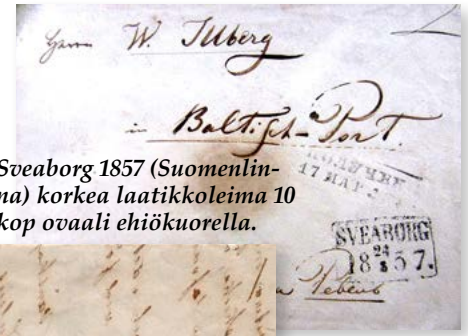 Herrn W. Illberg
in Baltisch-Port.
17 МАР
SVEABORG
24
18 8 57.
Sveaborg 1857 (Suomenlin-
na) korkea laatikkoleima 10
kop ovaali ehiökuorella.